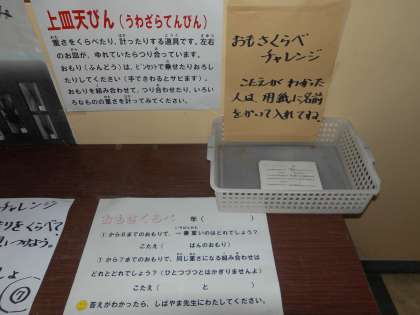 上皿天びん（うわざらてんびん）
重さをくらべたり、計ったりする道具です。左右
のお皿が、ゆれていたらつり合っています。
おもり（ふんどう）は、ピンセットで乗せたりおろし
たりしてください（手でさわるとサビます）。
おもりを組み合わせて、つり合わせたり、いろい
ろなものの重さを計ってみてください。
おもさくらべ
チャレンジ
こたえが わかった
人は、用紙に名前
をかいて入れてね。
チャレンジ
をくらべて
つなう。
⑦
おもさくらべ 年（ ）
①から⑥までのおもりで、一番重いのはどれでしょう？
こたえ（ ばんのおもり）
①から⑦までのおもりで、同じ重さになる組み合わせは
どれとどれでしょう？（ひとつづつとはかぎりませんよ）
こたえ（ と ）
答えがわかったら、しばやま先生にわたしてください。